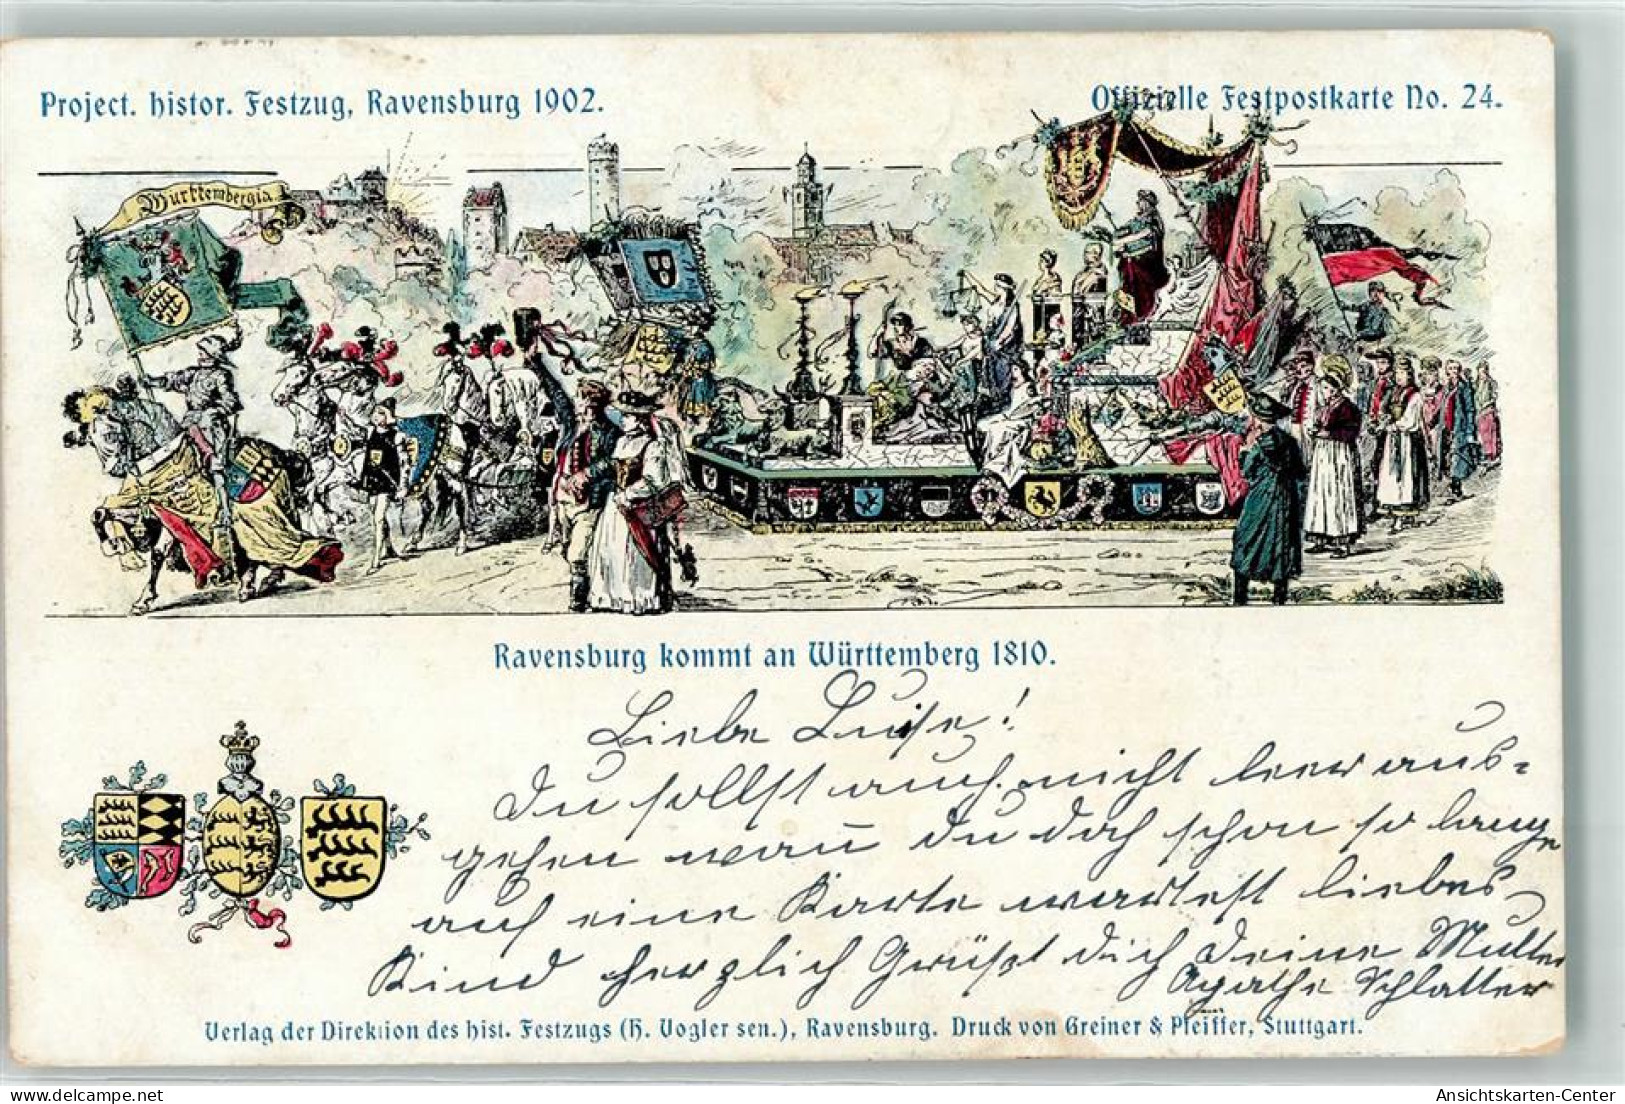 Project. histor. Festzug, Ravensburg 1902.
Offizielle Festpostkarte No. 24.
Württembergia
Ravensburg kommt an Württemberg 1810.
Liebe Luise!
Du sollst auch nicht leer aus-
gehen wan̄ du doch schon so lange
auf eine Karte wartest liebes
Kind herzlich Grüßt dich Deine Mutter
Agathe Schlatter
Verlag der Direktion des hist. Festzugs (H. Vogler sen.), Ravensburg. Druck von Greiner & Pfeiffer, Stuttgart.
Ansichtskarten-Center